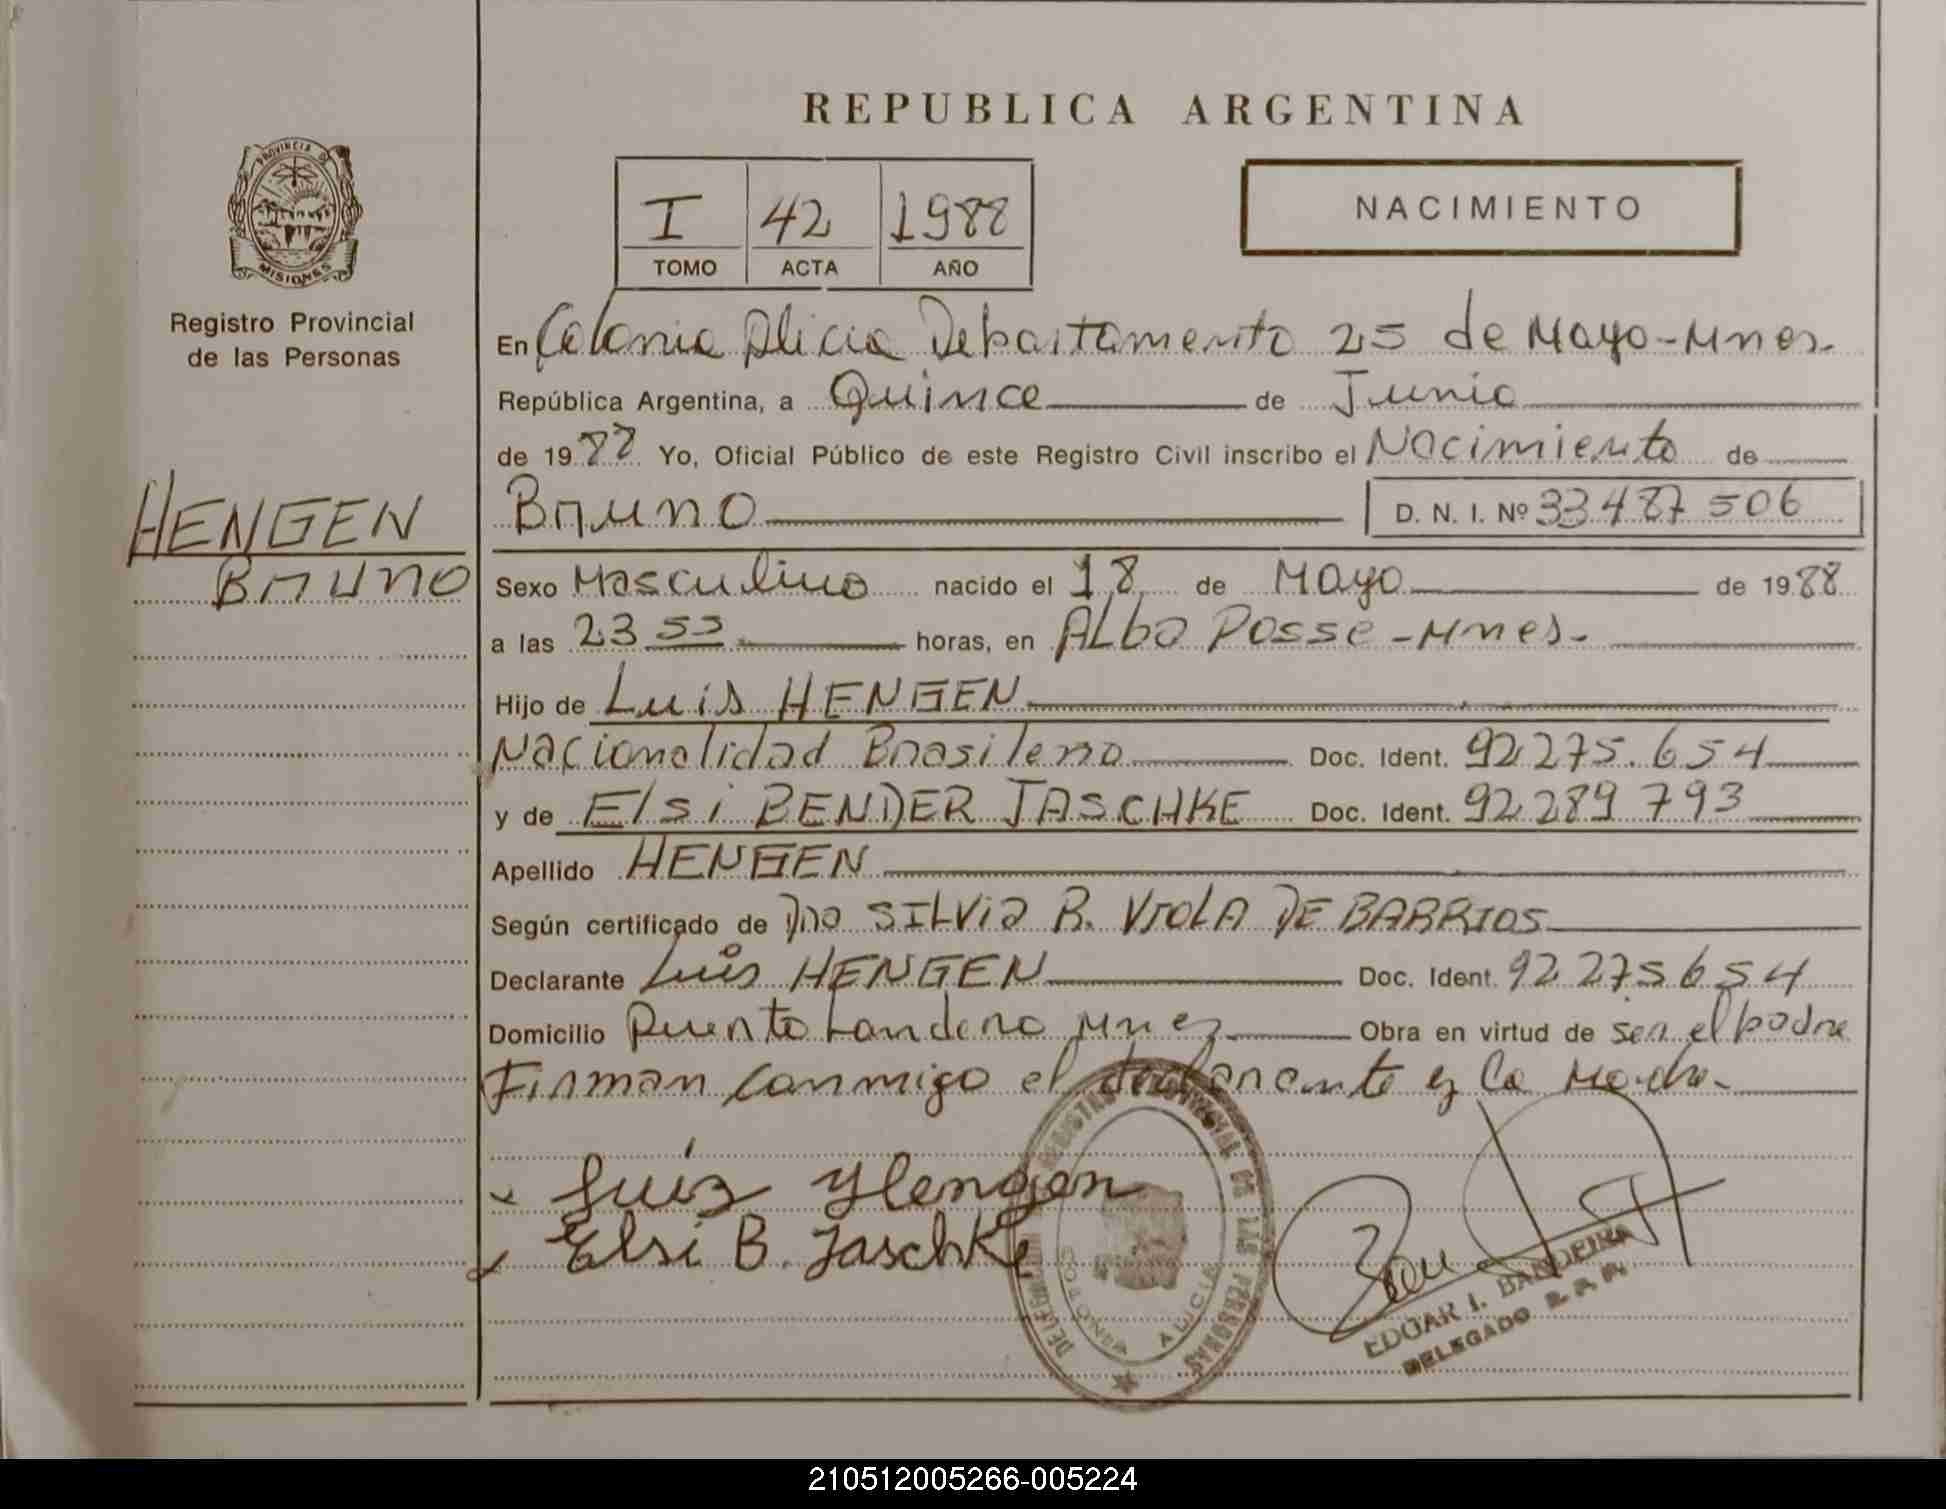 REPUBLICA ARGENTINA
PROVINCIA DE
MISIONES
Registro Provincial
de las Personas
I 42 1988
TOMO ACTA AÑO
NACIMIENTO
En Colonia Alicia Departamento 25 de Mayo-Mnes.
República Argentina, a Quince de Junio
de 1988 Yo, Oficial Público de este Registro Civil inscribo el Nacimiento de
Bruno D. N. I. Nº 33487506
HENGEN
BRUNO
Sexo Masculino nacido el 18 de Mayo de 1988
a las 23 55 horas, en ALba Posse-Mnes.
Hijo de Luis HENGEN
Nacionalidad Brasilera Doc. Ident. 92275.654
y de Elsi BENDER JASCHKE Doc. Ident. 92289793
Apellido HENGEN
Según certificado de Dra SILVIA B. VIOLA DE BARRIOS
Declarante Luis HENGEN Doc. Ident. 92275654
Domicilio Puerto Londero Mnes Obra en virtud de ser el padre
Firman conmigo el declarante y la Madre-
Luiz Hengen
Elsi B. Jaschke
REGISTRO PROVINCIAL DE LAS PERSONAS
COLONIA ALICIA
EDGAR I. BANDEIRA
DELEGADO R. P. P.
210512005266-005224